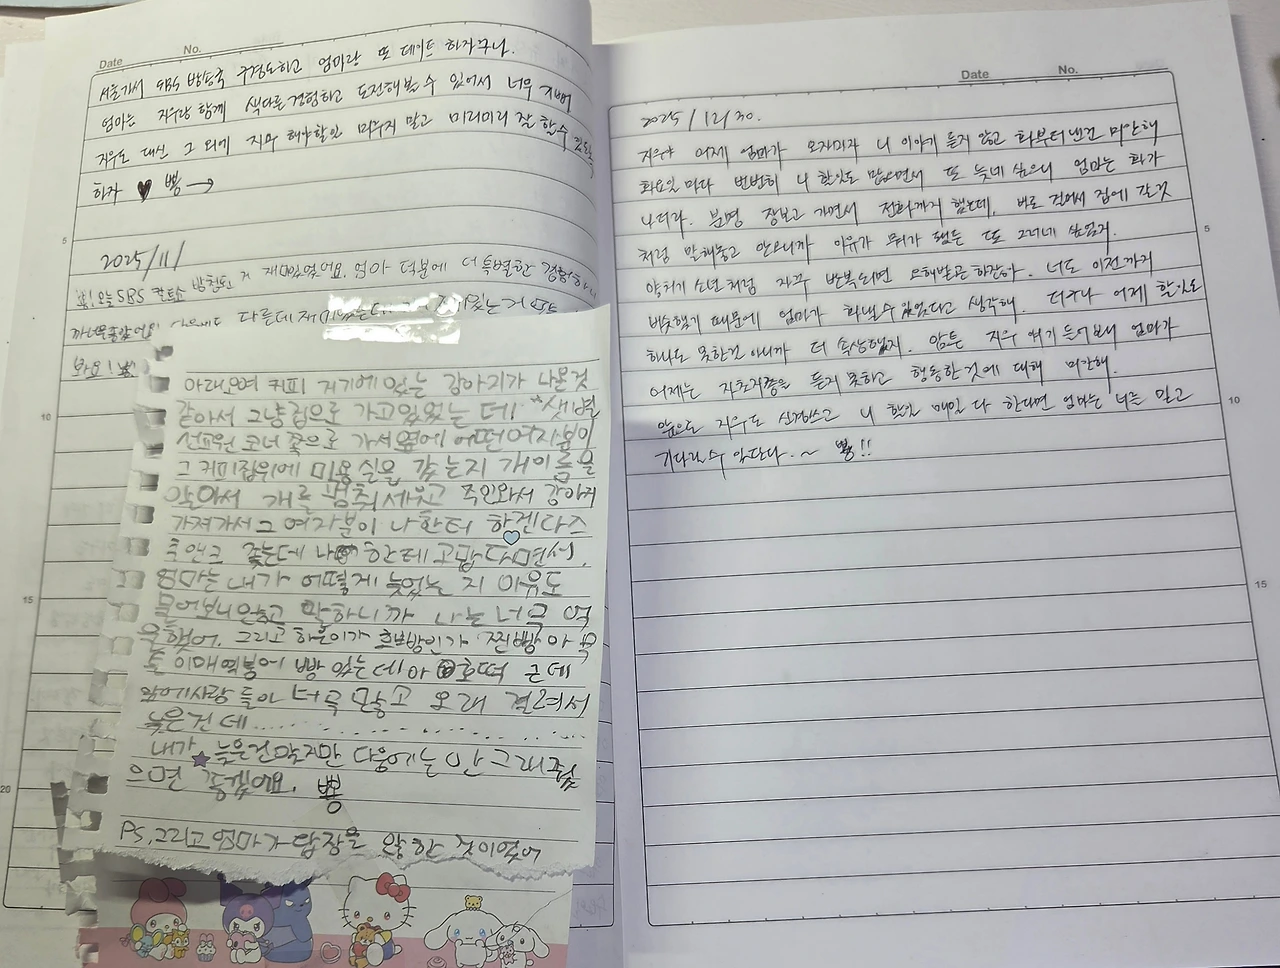 Date No.
서울가서 SBS 방송국 구경도하고 엄마랑 또 데이트 하자구나.
엄마는 지우랑 함께 색다른 경험하고 도전해볼 수 있어서 너무 기뻐
지우도 대신 그 외에 지우 해야할일 미루지 말고 미리미리 잘 할수 있도록
하자 ♥ 뿅 →
2025/11/
오늘 SBS 방청 재미있었어요. 엄마 덕분에 더 특별한
다른데 재미있는
봐요! 뿅
5
10
15
20
아래 커피 저기에 있는 강아지가 나온것
같아서 그냥 집으로 가고 있었는 데 "샛별
선교원 코너 쪽으로 가서 옆에 어떤 여자분이
그 커피집위에 미용실을 갔는지 개이름을
알아서 개를 멈춰세웠고 주인와서 강아지
가져가서 그 여자분이 나한터 하겐다즈
줬는데 나 한테 고맙다면서.
엄마는 내가 어떻게 늦었는 지 이유도
물어보니않고 말하니까 나는 너무 억
울했어. 그리고 하온이가 찐빵아
이매역붕어 빵 있는데아 호떡 근데
앞에사람 들이 너무 많고 오래 걸려서
늦은건데..............
내가 늦은건맞지만 다음에는 안 그래줬
으면 좋겠어요. 뿅
PS. 그리고 엄마가 답장을 않한 것이었어
Date No.
2025/12/30.
지우야 어제 엄마가 오자마자 니 이야기 듣지 않고 화부터낸건 미안해
화요일 마다 번번히 니 할일도 많으면서 또 늦네 싶으니 엄마는 화가
나더라. 분명 장보고 가면서 전화까지 했는데, 바로 걸어서 집에 갈것
처럼 말해놓고 안오니까 이유가 뭐가 됐든 또 그러네 싶었지.
양치기 소년처럼 자꾸 반복되면 오해받곤하잖아. 너도 이전까지
비슷했기 때문에 엄마가 화낼수 있었다고 생각해. 더구나 어제 할일도
하나도 못한것 아니까 더 속상했지. 암튼 지우 얘기 들어보니 엄마가
어제는 자초지종을 듣지 못하고 행동한것에 대해 미안해.
앞으로 지우도 신경쓰고 니 할일 매일 다 한다면 엄마는 너를 믿고
기다릴수 있단다. ~ 뿅!!
5
10
15